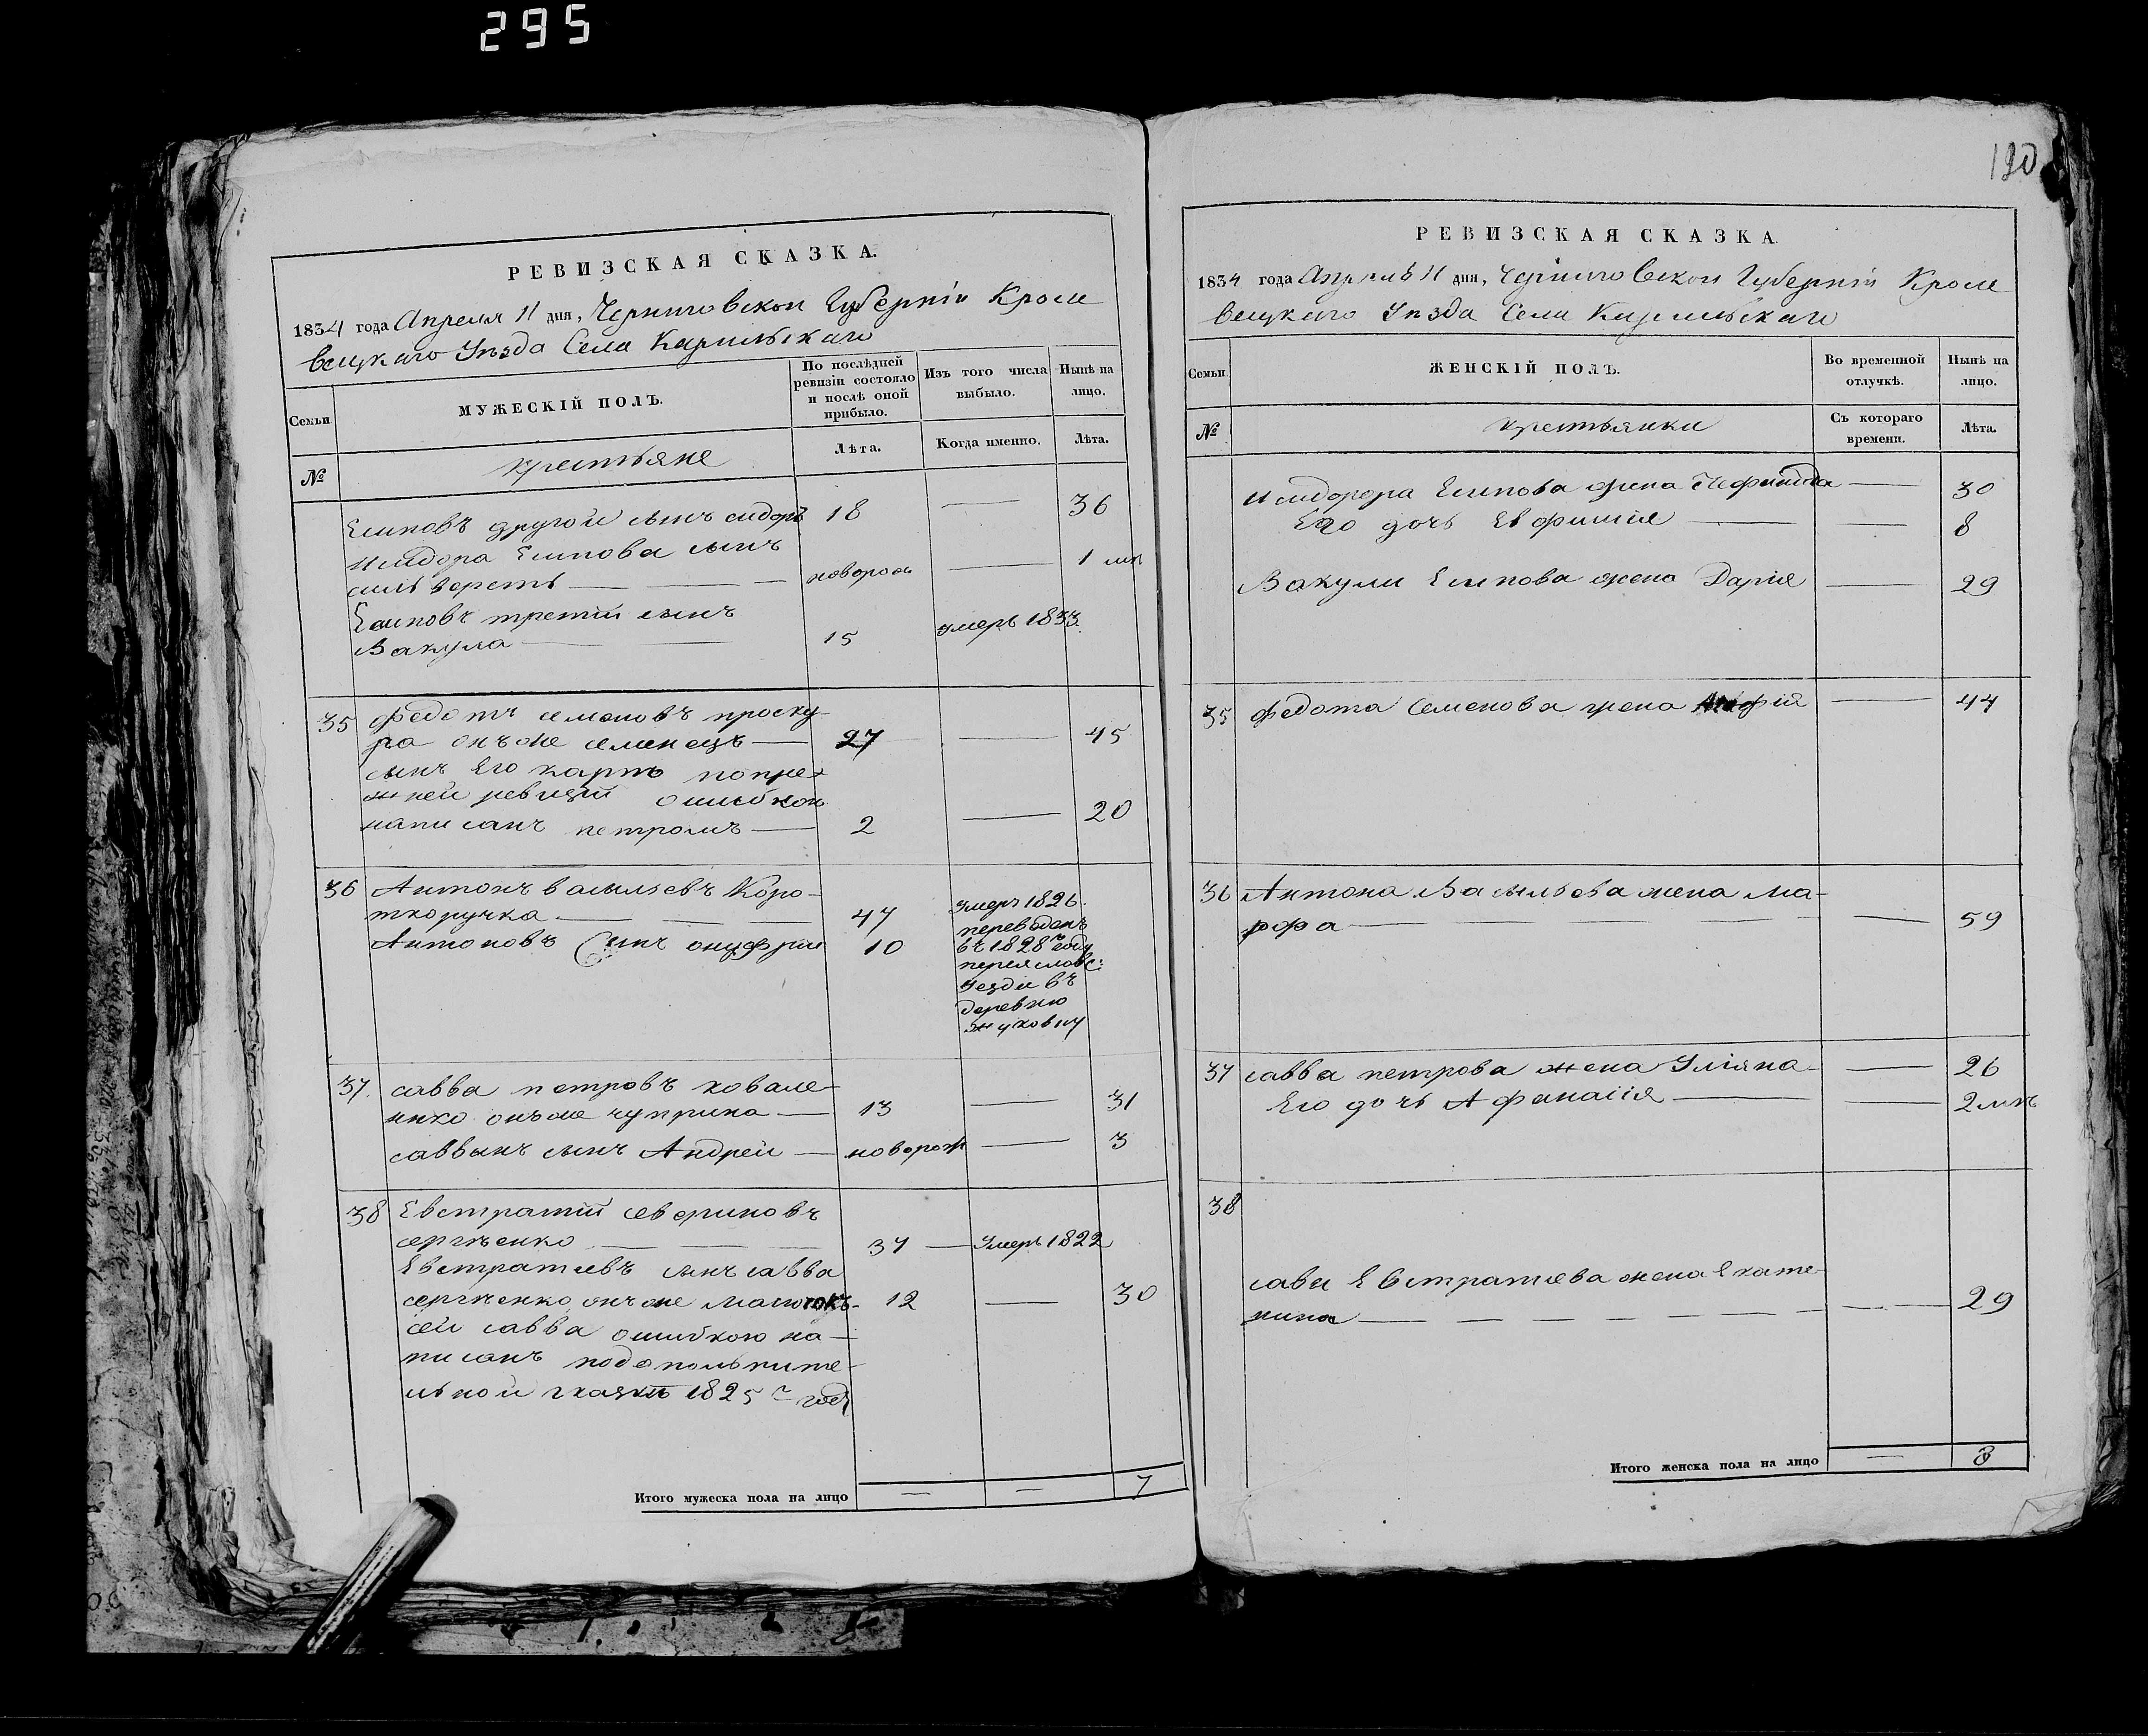 295
РЕВИЗСКАЯ СКАЗКА.
1834 года Апреля 11 дня, Черниговской Губернiи Кроле
вецкаго Уезда Села Карильскаго
Семьи
МУЖЕСКІЙ ПОЛЪ.
По послѣдней ревизіи состояло и послѣ оной прибыло.
Изъ того числа выбыло.
Нынѣ на лицо.
№
крестьяне
Лѣта.
Когда именно.
Лѣта.
Есиповъ другой сынъ сидоръ 18 — 36
Исидора Есипова сынъ
сильверстъ — новорож — 1 мѣ
Есиповъ третiй сынъ
Вакула — 15 умеръ 1833.
35 Федотъ семеновъ проску-
ра онъже семенецъ — 27 — 45
сынъ Его карпъ попре-
жней ревизiи ошибкою
написанъ петромъ — 2 — 20
36 Антонъ васильевъ Коро-
ткоручка — 47 умеръ 1826.
Антоновъ Сынъ онуфрiй 10 переведенъ
въ 1828 году
переяславс:
Уезда въ
деревню
жуковку
37. савва петровъ ковале-
нко онъже чуприна — 13 — 31
саввинъ сынъ Андрей — новорож — 3
38 Евстратiй севериновъ
сергѣенко — 37 — Умеръ 1822
Евстратiевъ сынъ савва
сергѣенко онъже 12 — 30
сей савва ошибкою на-
писанъ подополните-
льной сказкѣ 1825 г году
Итого мужеска пола на лицо — — 7
120
РЕВИЗСКАЯ СКАЗКА.
1834 года Апреля 11 дня, Черниговской Губернiи Кроле
вецкаго Уезда Села Карильскаго
Семьи
ЖЕНСКІЙ ПОЛЪ.
Во временной отлучкѣ.
Нынѣ на лицо.
№
крестьянки
Съ котораго времени.
Лѣта.
Исидора Есипова жена — 30
Его дочь Евфимiя — — 8
Вакули Есипова жена Дарiя — 29
35 Федота Семенова жена — 44
36 Антона Васильева жена Ма-
рфа — — 59
37 савва петрова жена Улiяна — 26
Его дочь Афанасiя — — 2 мѣ
38
савы Евстратiева жена Екате-
рина — — 29
Итого женска пола на лицо — 8